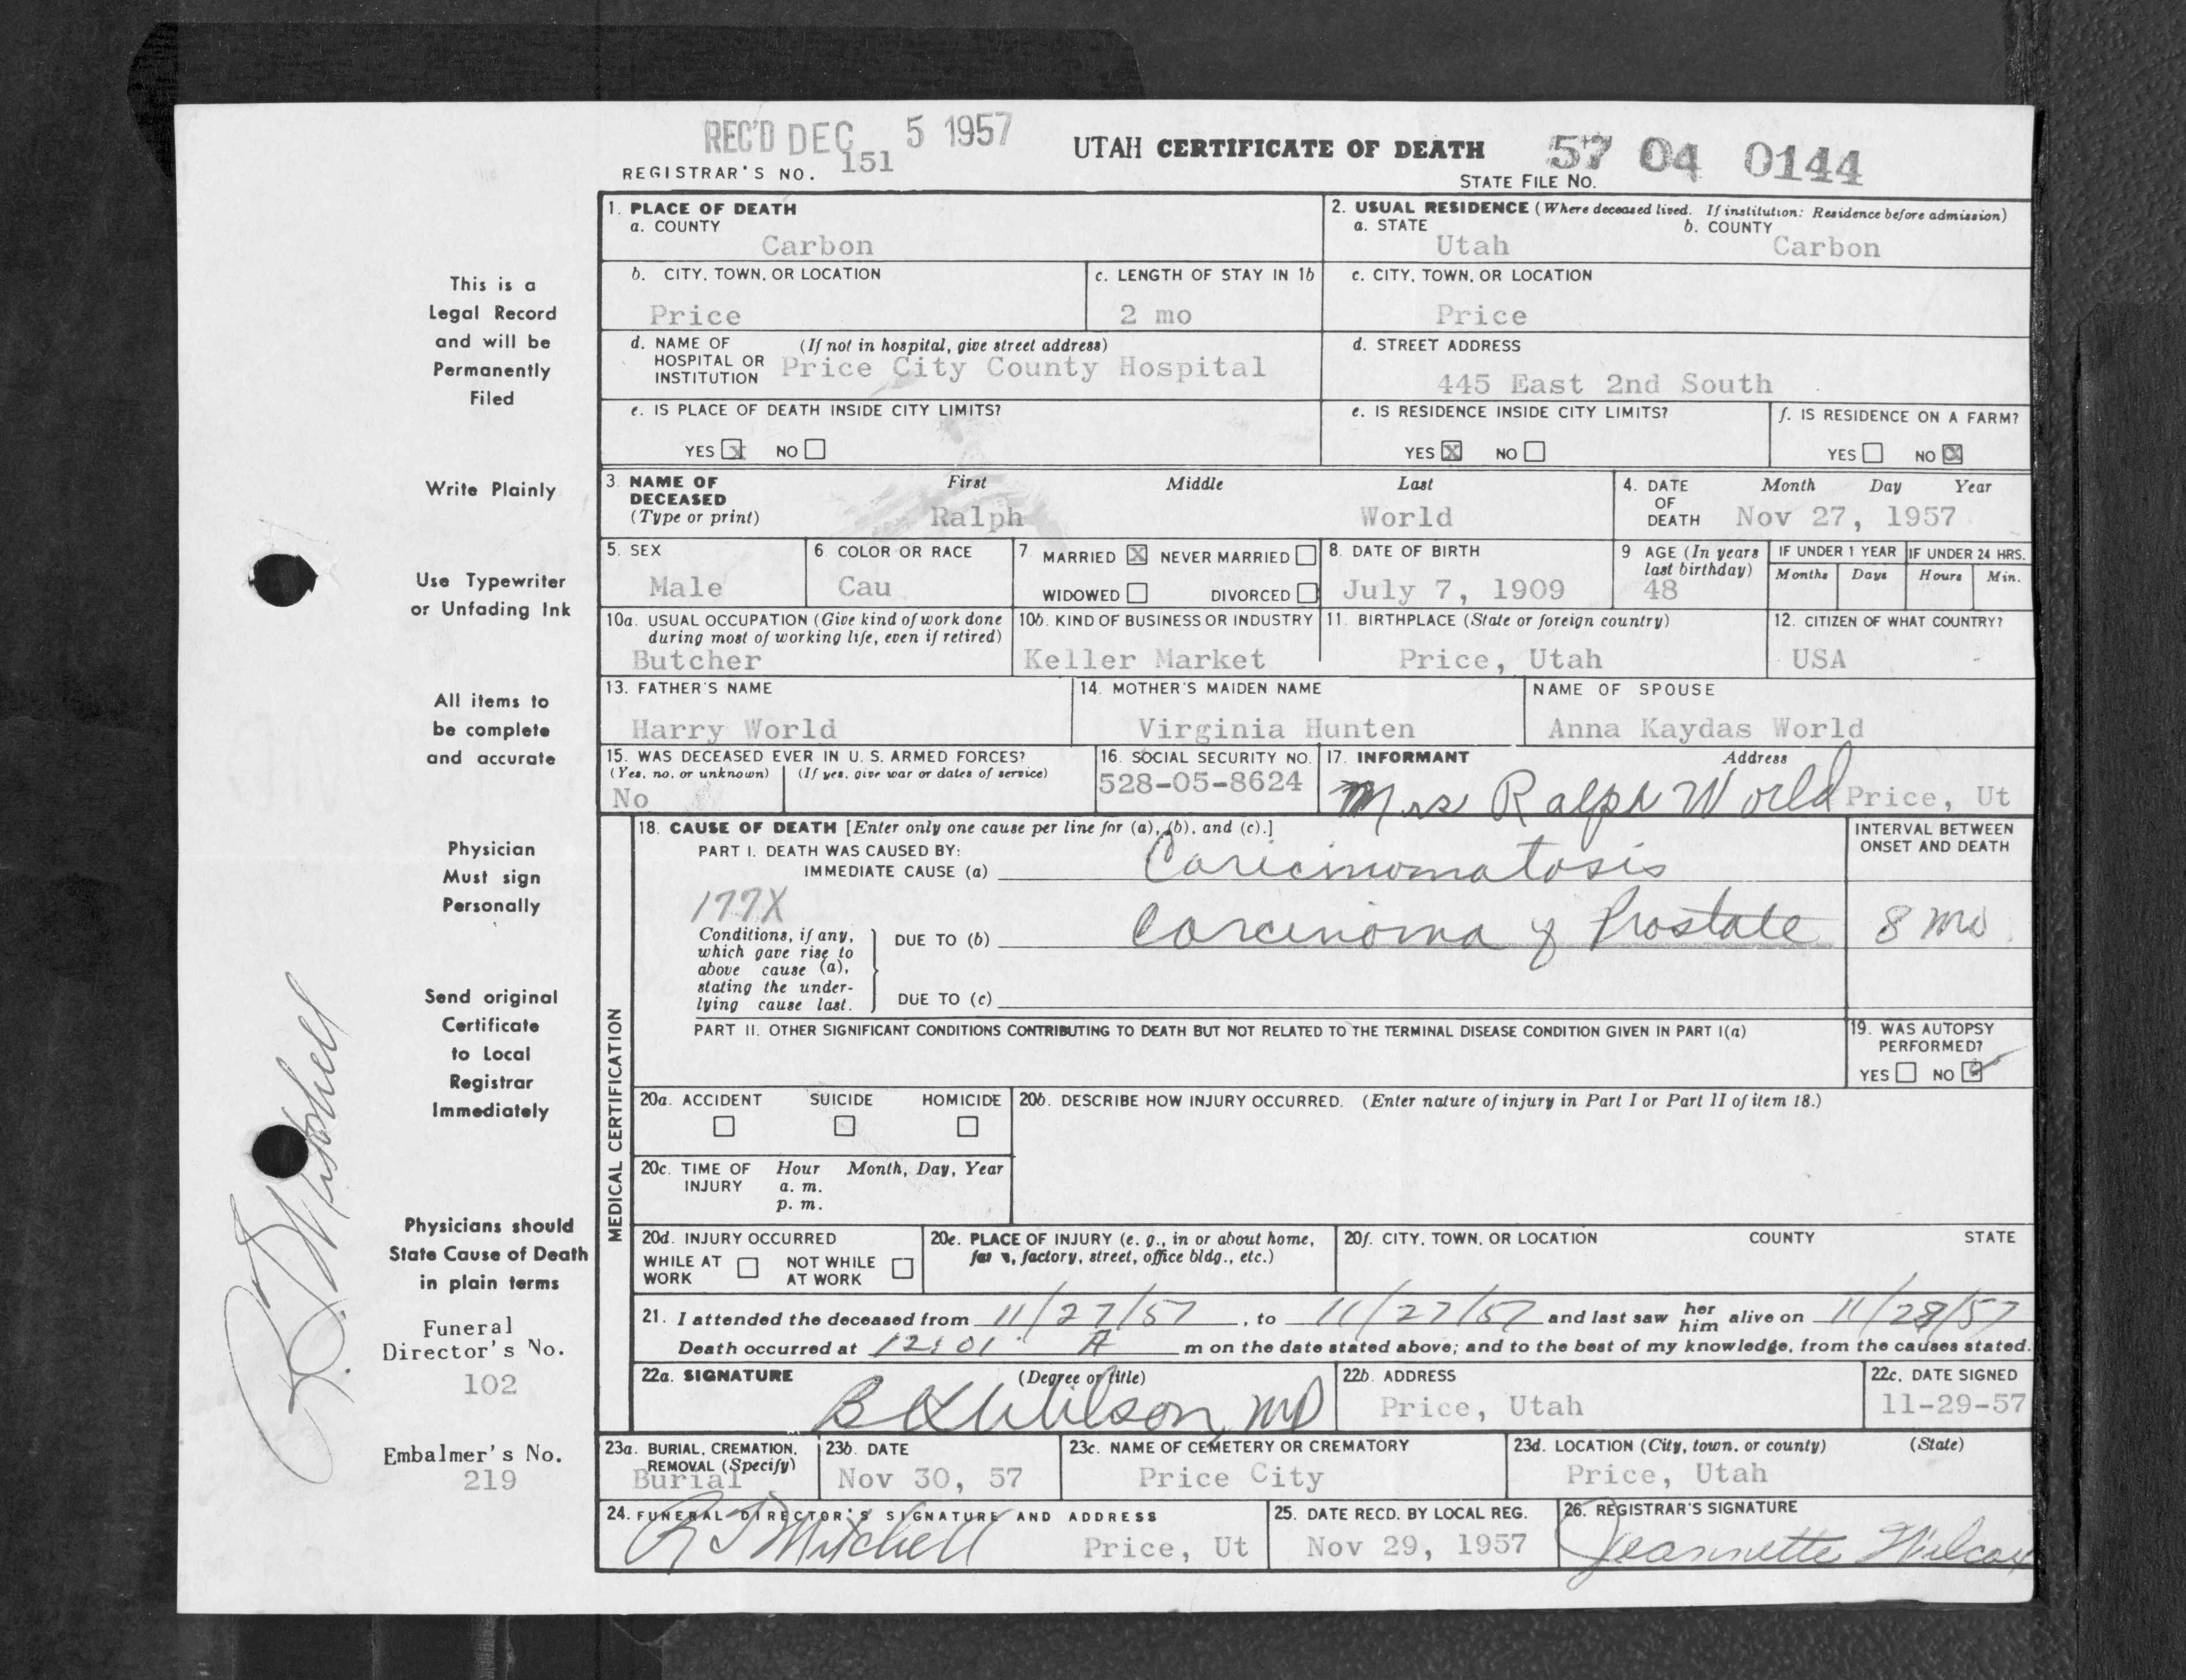 REC'D DEC 5 1957
UTAH CERTIFICATE OF DEATH
57 04 0144
REGISTRAR'S NO. 151
STATE FILE NO.
1. PLACE OF DEATH
a. COUNTY
Carbon
2. USUAL RESIDENCE (Where deceased lived. If institution: Residence before admission)
a. STATE
b. COUNTY
Utah
Carbon
b. CITY, TOWN, OR LOCATION
Price
c. LENGTH OF STAY IN 1b
2 mo
c. CITY, TOWN, OR LOCATION
Price
d. NAME OF HOSPITAL OR INSTITUTION
(If not in hospital, give street address)
Price City County Hospital
d. STREET ADDRESS
445 East 2nd South
e. IS PLACE OF DEATH INSIDE CITY LIMITS?
YES X NO
e. IS RESIDENCE INSIDE CITY LIMITS?
YES X NO
f. IS RESIDENCE ON A FARM?
YES NO X
3. NAME OF DECEASED
(Type or print)
First Middle Last
Ralph World
4. DATE OF DEATH
Month Day Year
Nov 27, 1957
5. SEX
Male
6. COLOR OR RACE
Cau
7. MARRIED X NEVER MARRIED
WIDOWED DIVORCED
8. DATE OF BIRTH
July 7, 1909
9 AGE (In years last birthday)
48
IF UNDER 1 YEAR
Months Days
IF UNDER 24 HRS.
Hours Min.
10a. USUAL OCCUPATION (Give kind of work done during most of working life, even if retired)
Butcher
10b. KIND OF BUSINESS OR INDUSTRY
Keller Market
11. BIRTHPLACE (State or foreign country)
Price, Utah
12. CITIZEN OF WHAT COUNTRY?
USA
13. FATHER'S NAME
Harry World
14. MOTHER'S MAIDEN NAME
Virginia Hunten
NAME OF SPOUSE
Anna Kaydas World
15. WAS DECEASED EVER IN U. S. ARMED FORCES?
(Yes, no, or unknown) (If yes, give war or dates of service)
No
16. SOCIAL SECURITY NO.
528-05-8624
17. INFORMANT Address
Mrs Ralph World Price, Ut
MEDICAL CERTIFICATION
18. CAUSE OF DEATH [Enter only one cause per line for (a), (b), and (c).]
PART I. DEATH WAS CAUSED BY:
IMMEDIATE CAUSE (a) Caricinomatosis
INTERVAL BETWEEN ONSET AND DEATH
177X
Conditions, if any, which gave rise to above cause (a), stating the underlying cause last.
DUE TO (b) Carcinoma of Prostate
8 mo
DUE TO (c)
PART II. OTHER SIGNIFICANT CONDITIONS CONTRIBUTING TO DEATH BUT NOT RELATED TO THE TERMINAL DISEASE CONDITION GIVEN IN PART I(a)
19. WAS AUTOPSY PERFORMED?
YES NO
20a. ACCIDENT SUICIDE HOMICIDE
20b. DESCRIBE HOW INJURY OCCURRED. (Enter nature of injury in Part I or Part II of item 18.)
20c. TIME OF INJURY
Hour Month, Day, Year
a. m.
p. m.
20d. INJURY OCCURRED
WHILE AT WORK
NOT WHILE AT WORK
20e. PLACE OF INJURY (e. g., in or about home, farm, factory, street, office bldg., etc.)
20f. CITY, TOWN, OR LOCATION COUNTY STATE
21. I attended the deceased from 11/27/57, to 11/27/57 and last saw her him alive on 11/28/57
Death occurred at 12:01 A m on the date stated above; and to the best of my knowledge, from the causes stated.
22a. SIGNATURE (Degree or title)
B K Wilson, MD
22b. ADDRESS
Price, Utah
22c. DATE SIGNED
11-29-57
23a. BURIAL, CREMATION, REMOVAL (Specify)
Burial
23b. DATE
Nov 30, 57
23c. NAME OF CEMETERY OR CREMATORY
Price City
23d. LOCATION (City, town, or county) (State)
Price, Utah
24. FUNERAL DIRECTOR'S SIGNATURE AND ADDRESS
R J Mitchell Price, Ut
25. DATE RECD. BY LOCAL REG.
Nov 29, 1957
26. REGISTRAR'S SIGNATURE
Jeannette Wilcox
This is a
Legal Record
and will be
Permanently
Filed
Write Plainly
Use Typewriter
or Unfading Ink
All items to
be complete
and accurate
Physician
Must sign
Personally
Send original
Certificate
to Local
Registrar
Immediately
Physicians should
State Cause of Death
in plain terms
Funeral
Director's No.
102
Embalmer's No.
219
R. J. Mitchell